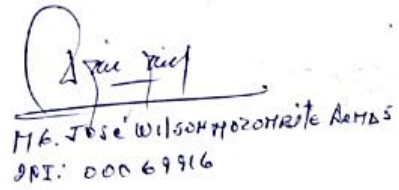 MG. JOSÉ WILSON MOZOMBITE ARMAS
DNI: 00069916